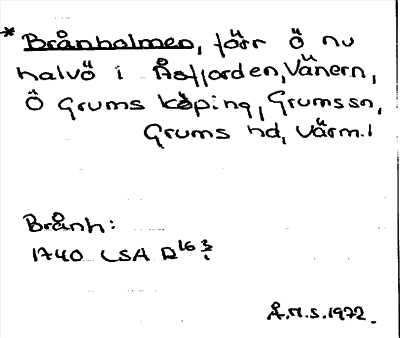 * Brånholmen, förr ö nu
halvö i Åsfjorden, Vänern,
Ö Grums köping, Grums sn,
Grums hd, Värm.l
Brånh:
1740 LSA D16 3/1
Å.M.S. 1972.